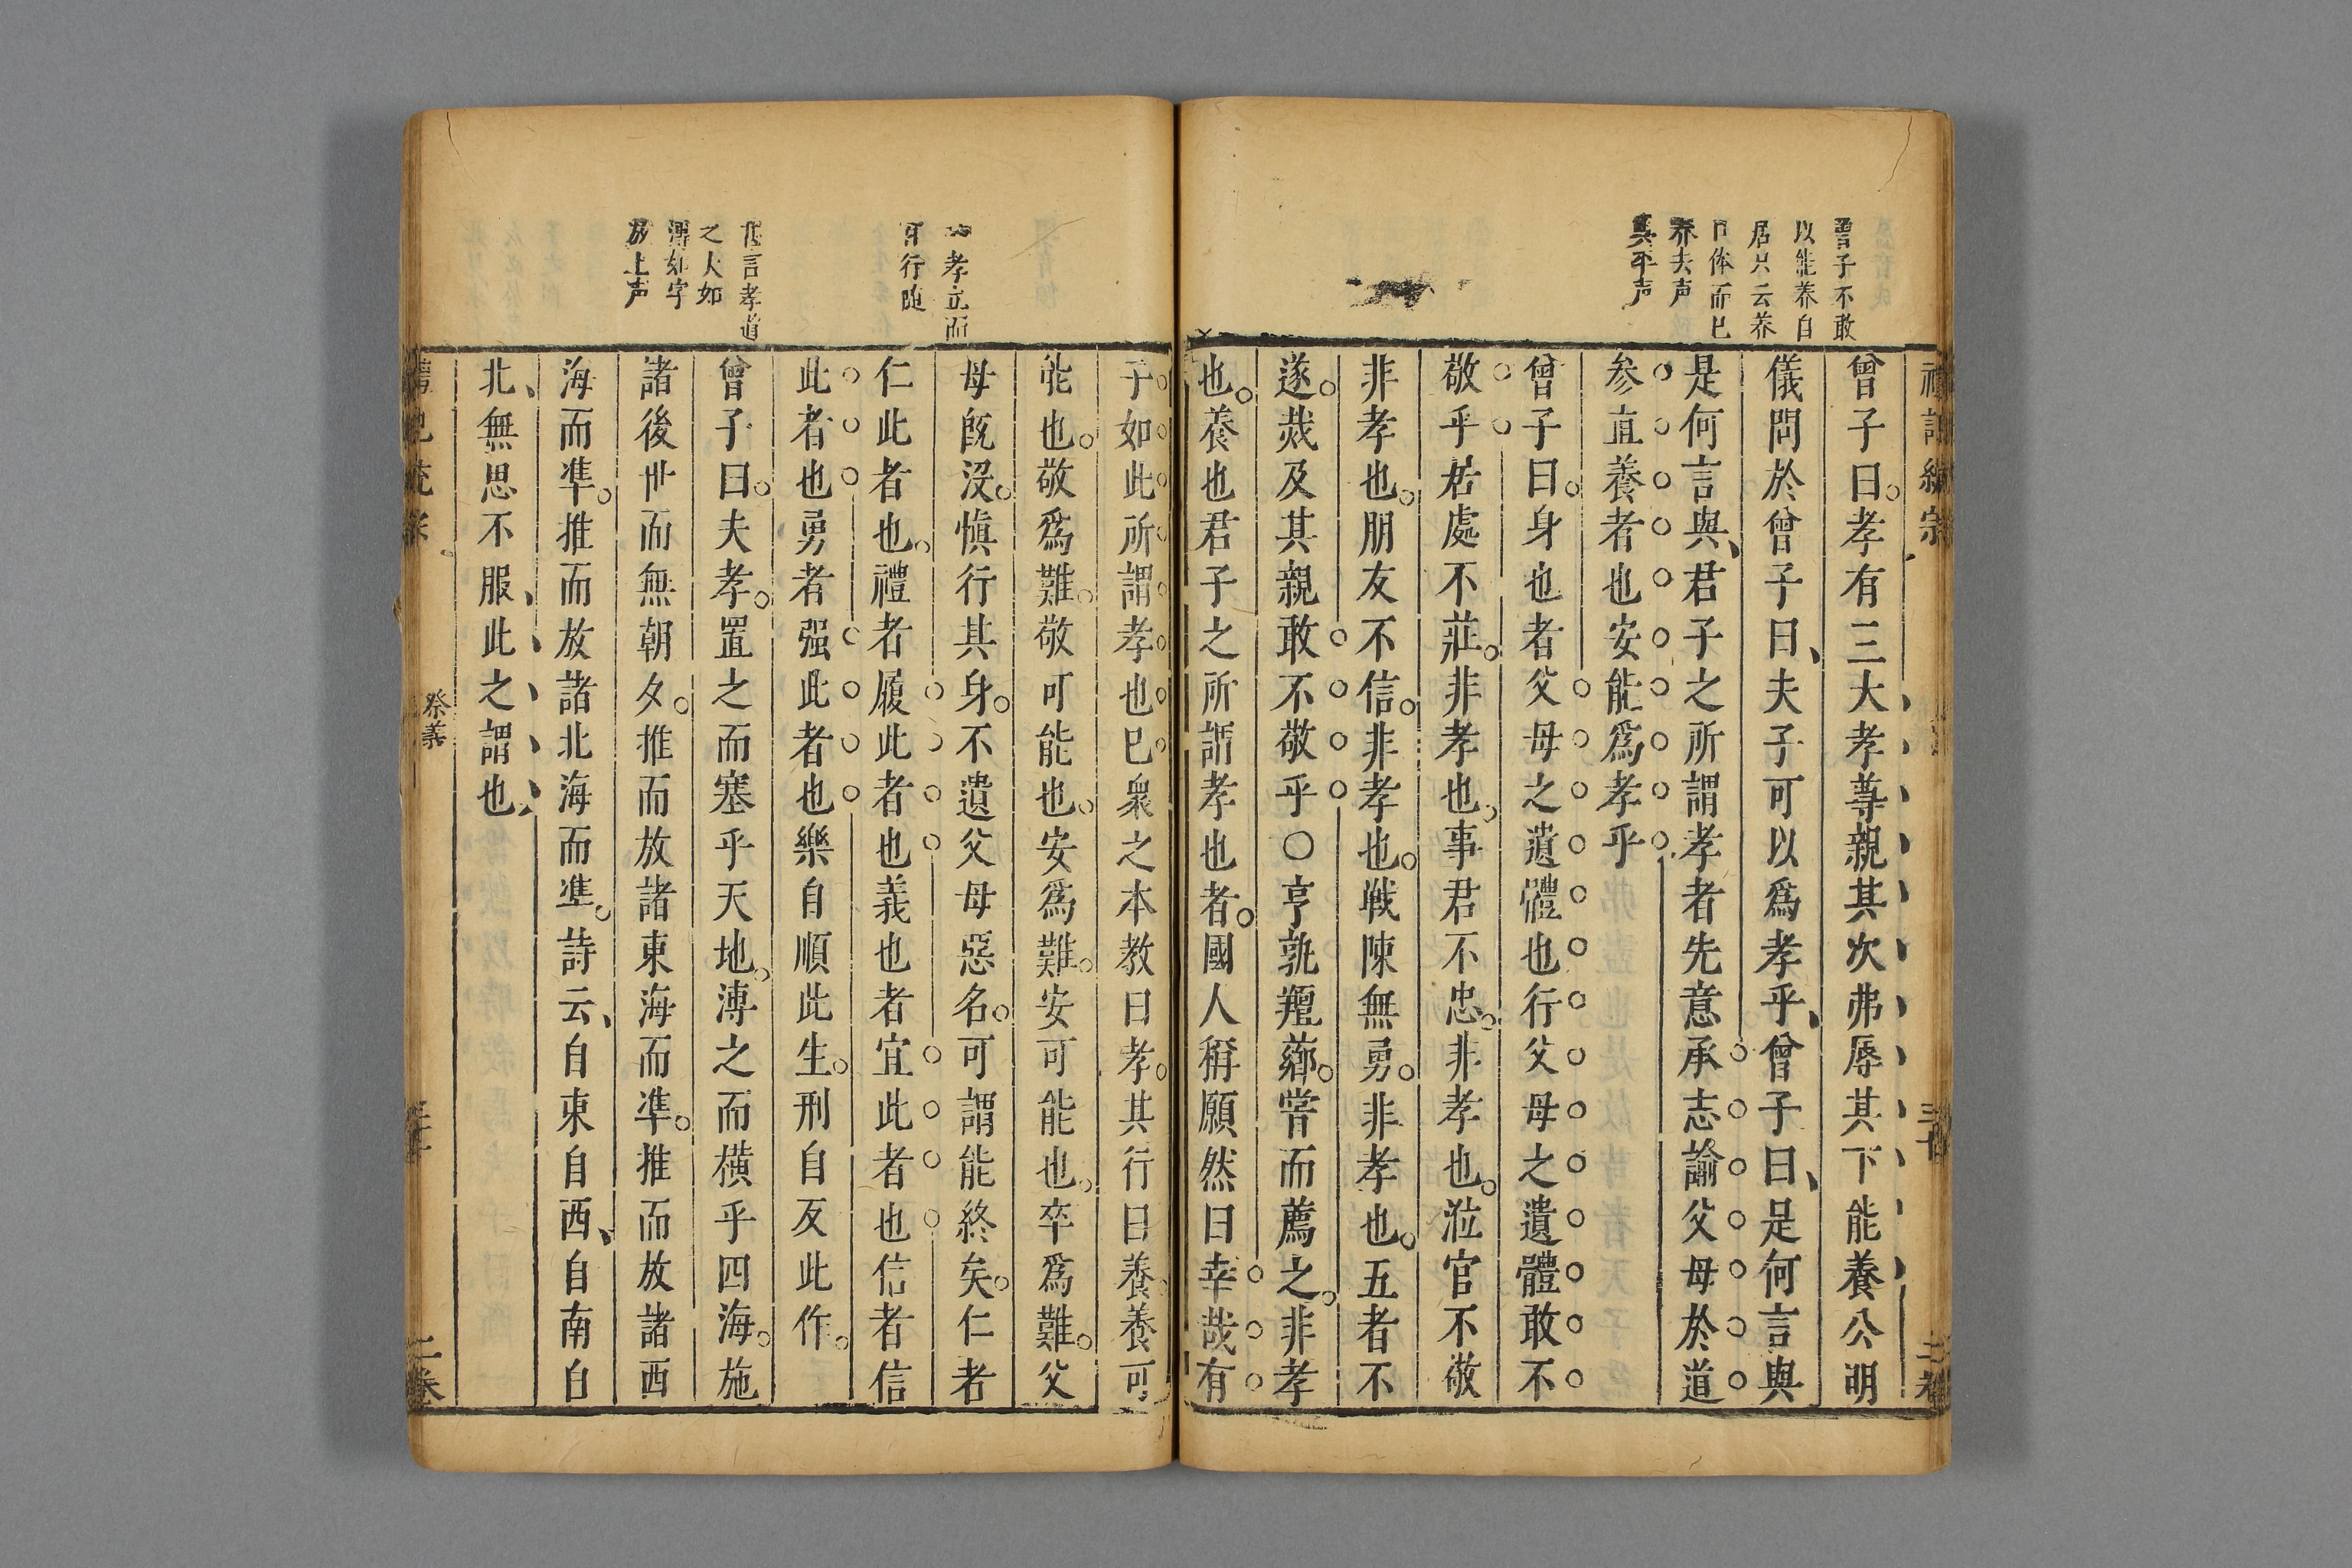 曾子不敢
以能養自
居只云养
口体而已
养去声
與平声
曾子曰孝有三大孝尊親其次弗辱其下能養公明
儀問於曾子曰夫子可以爲孝乎曾子曰是何言與
是何言與君子之所謂孝者先意承志諭父母於道
参直養者也安能爲孝乎
曾子曰身也者父母之遺體也行父母之遺體敢不
敬乎居處不莊非孝也事君不忠非孝也涖官不敬
非孝也朋友不信非孝也戰陳無勇非孝也五者不
遂烖及其親敢不敬乎〇亨孰羶薌嘗而薦之非孝
也養也君子之所謂孝也者國人稱願然曰幸哉有
孝立而
百行随
言孝道
之大如
溥如字
放上声
子如此所謂孝也已衆之本教曰孝其行曰養養可
能也敬爲難敬可能也安爲難安可能也卒爲難父
母既没慎行其身不遺父母惡名可謂能終矣仁者
仁此者也禮者履此者也義也者宜此者也信者信
此者也勇者强此者也樂自順此生刑自反此作
曾子曰夫孝置之而塞乎天地溥之而横乎四海施
諸後世而無朝夕推而放諸東海而準推而放諸西
海而準推而放諸北海而準詩云自東自西自南自
北無思不服此之謂也
祭義
二卷